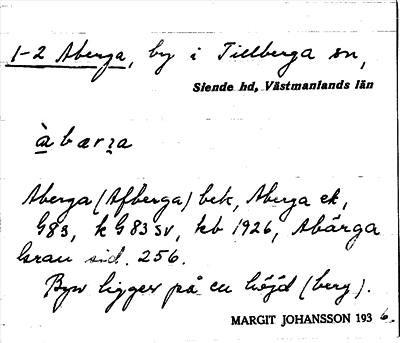 1-2 Aberga, by i Tillberga sn,
Siende hd, Västmanlands län
àbærɜa
Aberga (Afberga) bek, Aberga ek,
G83, k G83 sv, kb 1926, Abärga
Grau sid. 256.
Byn ligger på en höjd (berg).
MARGIT JOHANSSON 1936.